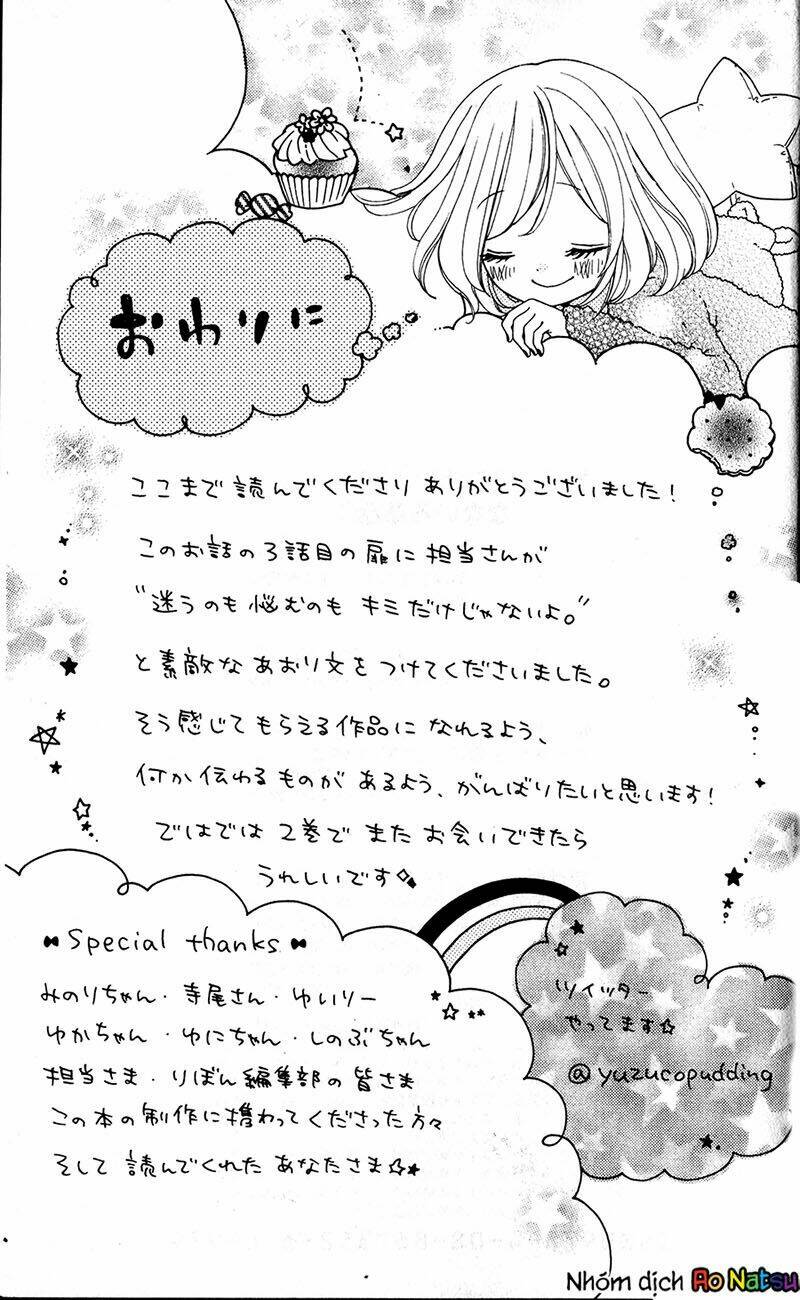 おわりに
ここまで読んでくださりありがとうございました！
このお話の3話目の扉に担当さんが
"迷うのも悩むのもキミだけじゃないよ。"
と素敵なあおり文をつけてくださいました。
そう感じてもらえる作品になれるよう、
何か伝わるものがあるよう、がんばりたいと思います！
ではでは2巻でまたお会いできたら
うれしいです
Special thanks
みのりちゃん・寺尾さん・ゆいりー
ゆかちゃん・ゆにちゃん・しのぶちゃん
担当さま・りぼん編集部の皆さま
この本の制作に携わってくださった方々
そして読んでくれたあなたさま☆★
ツイッター
やってます☆
@yuzucopudding
Nhóm dịch Ao Natsu